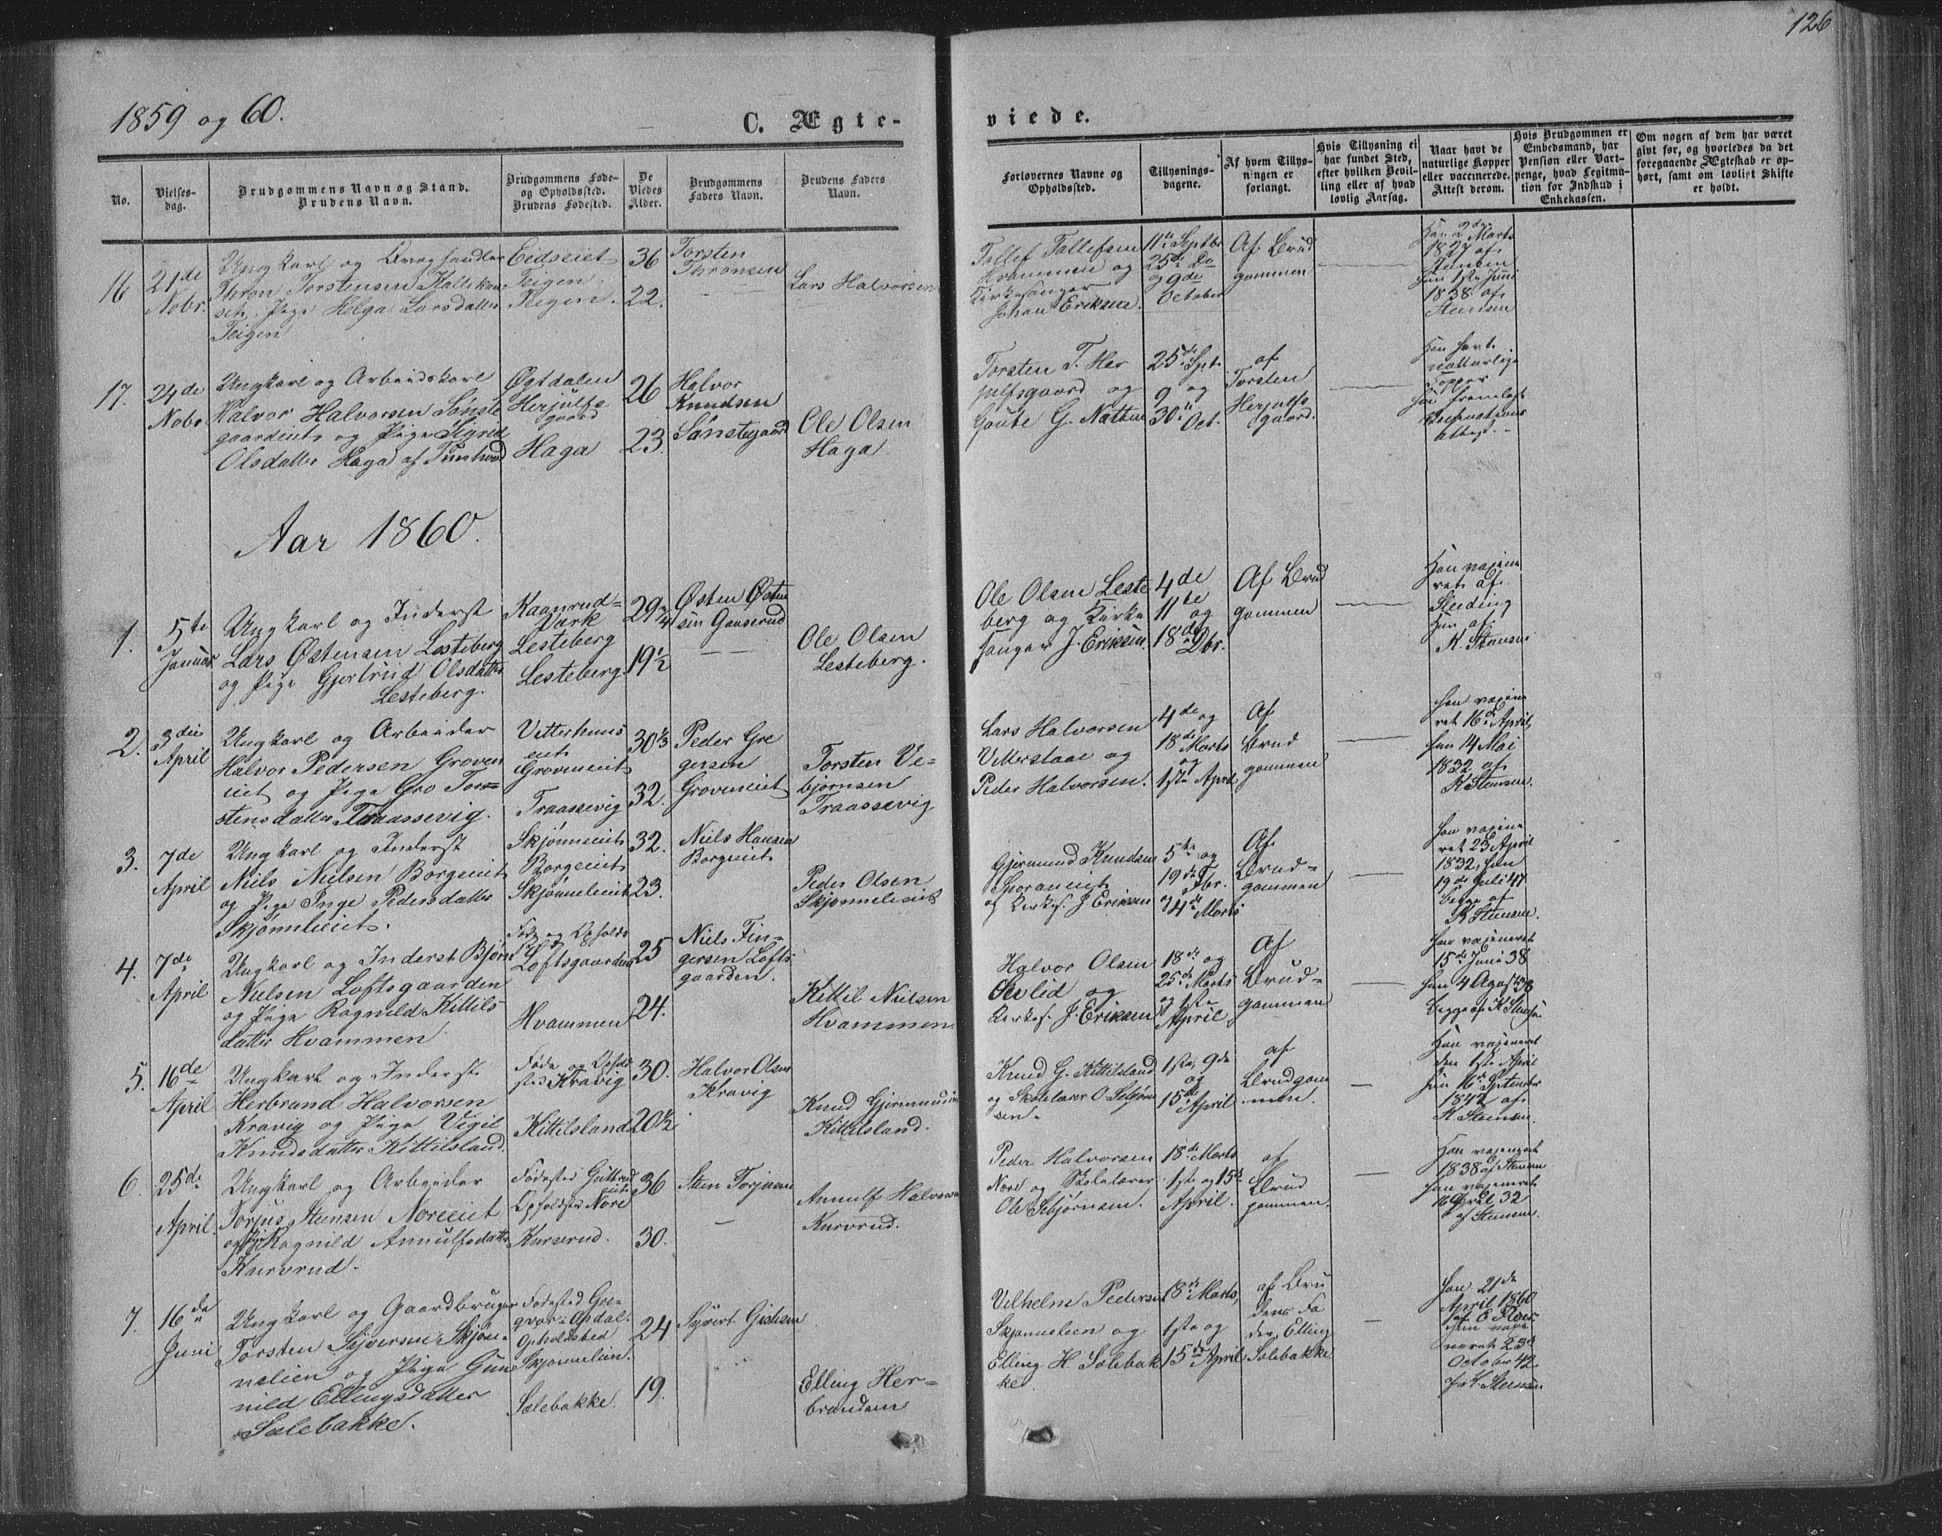 126
1859 og 60.
C. Ægte-
viede.
No.
Vielses-
dag.
Brudgommens Navn og Stand.
Brudens Navn.
Brudgommens Føde-
og Opholdssted.
Brudens Fødested.
De
Viedes
Alder.
Brudgommens
Faders Navn.
Brudens Faders
Navn.
Forlovernes Navne og
Opholdssted.
Tillysnings-
dagene.
Af hvem Tillys-
ningen er
forlangt.
Hvis Tillysning ei
har fundet Sted,
efter hvilken Bevil-
ling eller af hvad
lovlig Aarsag.
Naar havt de
naturlige Kopper
eller vaccinerede.
Attest derom.
Hvis Brudgommen er
Embedsmand, har
Pension eller Vart-
penge, hvad Legitima-
tion for Indskud i
Enkekassen.
Om nogen af dem har været
gift før, og hvorledes da det
foregaaende Ægteskab er op-
hørt, samt om lovligt Skifte
er holdt.
16
21de
Nobr.
Ungkarl og
Thron Torstensen
Pige Helga Larsdatter
Teigen
Eidseiet
Teigen.
Teigen.
36
22.
Torsten
Thronsen
Lars Halvorsen
Tollef Tollefsen
Hvammen og
Kirkesanger
Johan Eriksen.
11te Septbr
25de Do
og 9de
October
Af Brud
gommen
Han 2den Marts
1827 af
Hun 1ste Juni
1838 af
Stensen
17.
24de
Nobr
Ungkarl og Arbeidskarl
Halvor Halvorsen Sønste
gaardeiet og Pige Sigrid
Olsdatter Haga af Tunhovd
Øgtdalen
Herjulfs
gaard
Haga
26
23.
Halvor
Knudsen
Sønstegaard
Ole Olsen
Haga.
Torsten T. Her
julfsgaard og
Goute G. Natten
25de Spt.
9 og
30te Oct.
af
Torsten
Herjulfs
gaard.
Han havt
naturlige
Kopper
Hun
attest.
Aar 1860.
1.
5te
Januar
Ungkarl og Inderst
Lars Østensen Lesteberg
og Pige Gjertrud Olsdatter
Lesteberg.
Kaanrud-
Værk
Lesteberg
Lesteberg
29 3/4
19 1/2
Østen Østen
sen Gaaserud
Ole Olsen
Lesteberg.
Ole Olsen Leste
berg og Kirke
sanger J. Eriksen.
4de
11te og
18de Dbr.
Af Brud
gommen
Han vaxine
ret af
Hun af
K. Stensen
2.
3die
April
Ungkarl og Arbeider
Halvor Pedersen Groven
eiet og Pige Gro Tor-
stensdatter Traassevig.
Vetterhuus
eiet
Groveneiet
Traassevig
30 1/3
32.
Peder Gre
gersen
Groveneiet
Torsten Ve-
bjørnsen
Traassevig
Lars Halvorsen
Vetterstaae og
Peder Halvorsen.
4de og
18de Marts
og
1ste April
Af
Brud
gommen
Han vaxine
ret 16de April,
Hun 14 Mai
1832 af
K Stensen.
3.
7de
April
Ungkarl og Inderst
Niels Nielsen Borgeeiet
og Pige Inge Pedersdatter
Skjønnlieiet.
Skjønneeiet
Borgeeiet
Skjønnelieeiet
32.
23.
Niels Hansen
Borgeeiet
Peder Olsen
Skjønnelieiet
Gjermund Knudsen
Sporaneiet
og Kirkes. J. Eriksen
5te og
19de Fbr.
og 4de Marts
Af
Brud-
gommen
Han vaxine
ret 23 April
1832, Hun
19de Juli 47
begge af
K Stensen.
4.
7de
April
Ungkarl og Inderst Bjørn
Nielsen Loftsgaarden
og Pige Ragnild Kittils
datter Hvammen
Føde og Opholds
sted
Loftsgaarden
Hvammen
25
24.
Niels Fin-
gersen Lofts
gaarden.
Kittil Nielsen
Hvammen
Halvor Olsen
Ovlid og
Kirkes. J. Eriksen
18de og
25de Marts
og 1ste
April
Af
Brud-
gommen
Han vaxineret
15de Juni 38
Hun 4 Agost 38
begge af K Stensen
5.
16de
April
Ungkarl og Inderst
Herbrand Halvorsen
Kravig og Pige Vigil
Knudsdatter Kittilsland.
Føde og Opholds
sted Kravig
Kittilsland
30.
20 1/2
Halvor Olsen
Kravig
Knud Gjermundsen
Kittilsland.
Knud G. Kittilsland
og Skolelærer O. Sbjørn
sen.
1ste, 9de
og
15de April
af
Brudgom
men.
Han vaxineret
den 1ste April
Hun 16de September
1842 af
K Stensen.
6.
25de
April.
Ungkarl og Arbeider
Torjus Stensen Noreeiet
og Pige Ragnild Annulfsdatter
Kurvrud.
Fødested Guttrud
eiet
Opholdsted Nore
Kurverud.
36
30.
Sten Torjusen
Annulf Halvorsen
Kurvrud.
Peder Halvorsen
Nore og Skolelærer
Ole Sbjørnsen.
18de Marts
1ste og 15de
April.
af
Brud
gommen.
Han vaxineret
1838 af Stensen
Hun vaxineret
16 April 32
af Stensen
7.
16de
Juni
Ungkarl og Gaardbruger
Torsten Syversen Skjøn-
nelien og Pige Gun
nild Ellingsdatter
Sælebakke.
Fødested Gre-
gvor i Opdal.
Opholdsted
Skjønnelien.
Sælebakke.
24
19.
Syvert Gislesen
Elling Her-
brandsen
Velhelm Pedersen
Skjønnelien og
Elling H. Sælebak
ke.
18de Marts,
1ste og
15de April
af Bru
dens Fa
der, Elling
Sælebakke
Han 21de
April 1860
af
Hun vaxi
neret 23de
October 42
af K. Stensen